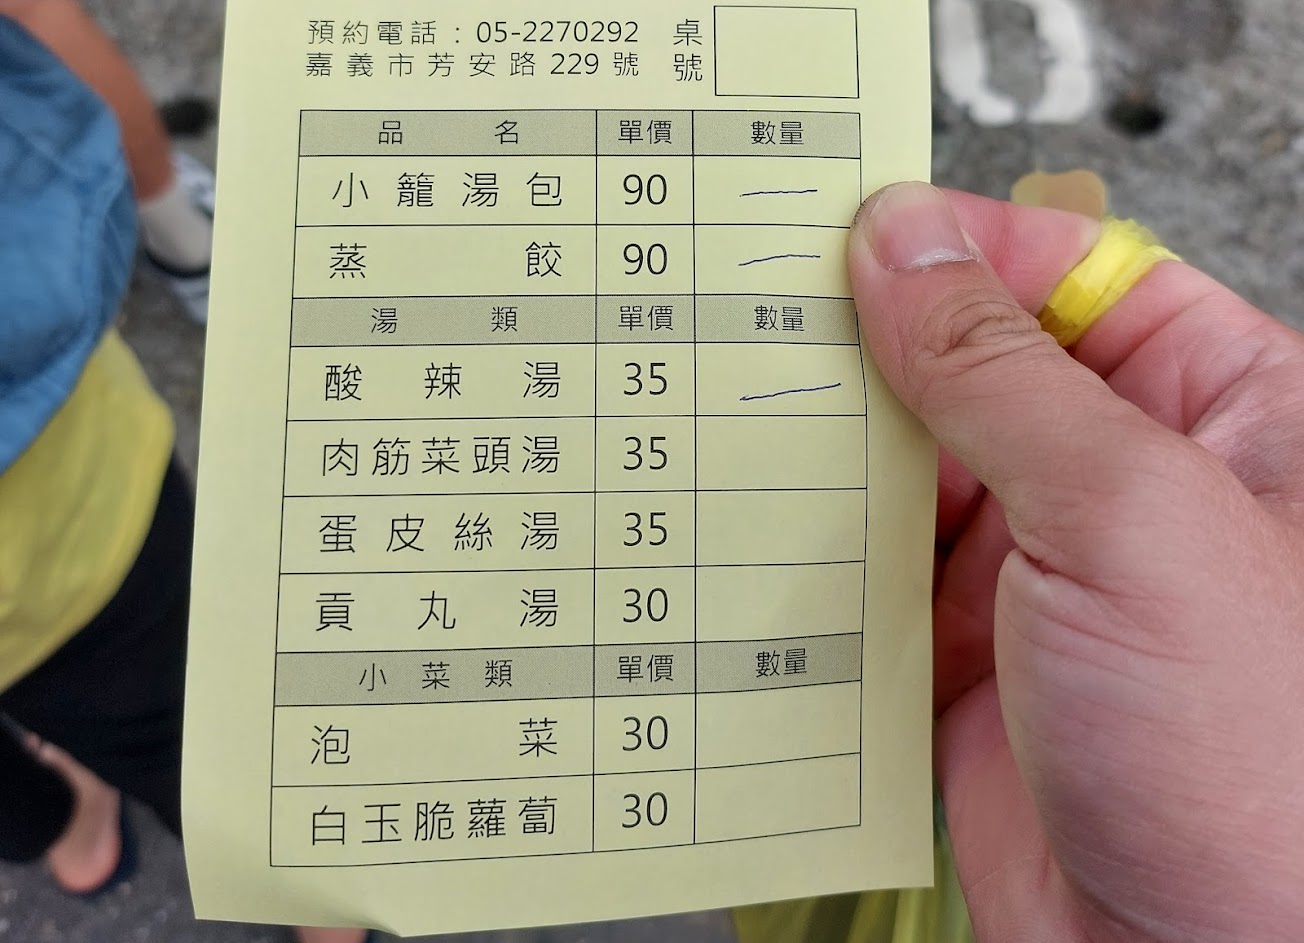 預約電話：05-2270292 桌號
嘉義市芳安路229號
品名 單價 數量
小籠湯包 90 一
蒸餃 90 一
湯類 單價 數量
酸辣湯 35 一
肉筋菜頭湯 35
蛋皮絲湯 35
貢丸湯 30
小菜類 單價 數量
泡菜 30
白玉脆蘿蔔 30
0